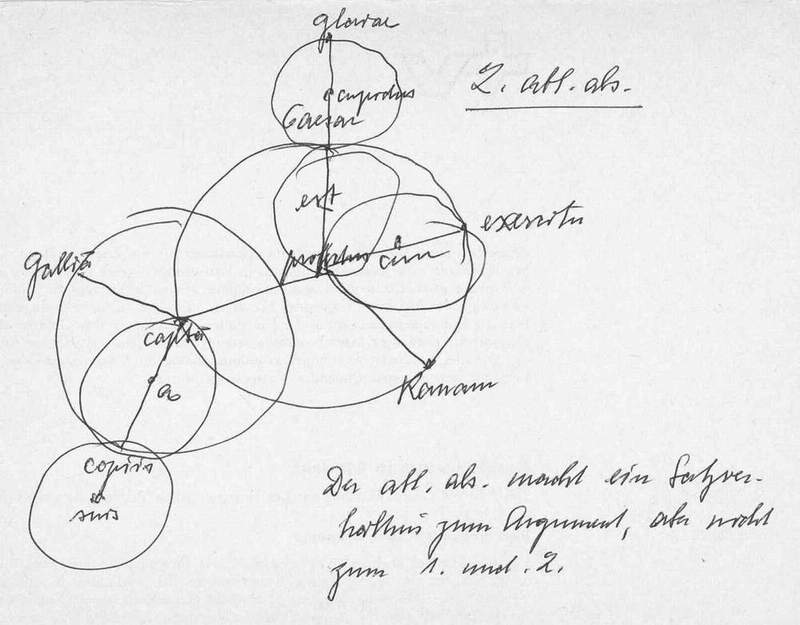 gloriae
cupidus
Caesar
2. abl. abs.
est
exercitu
profectus cum
Galliā
captā
Romam
a
copiis
suis
Der abl. abs. macht ein Satzver-
hältnis zum Argument, aber nicht
zum 1. und 2.